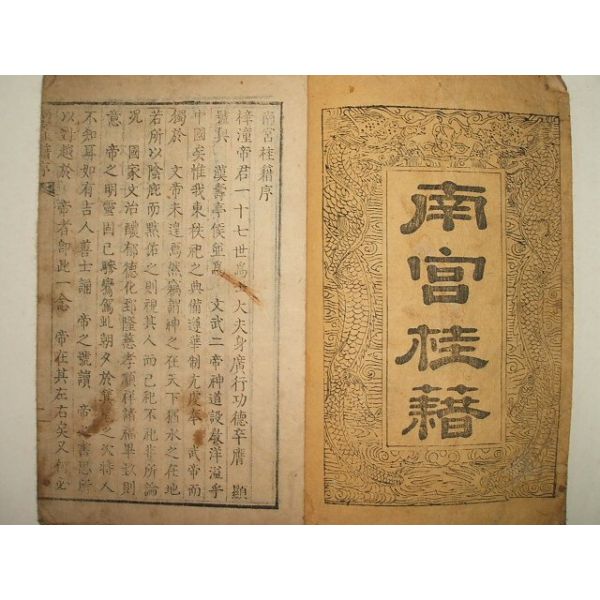 南宮桂籍
南宮桂籍序
梓潼帝君一十七世爲士大夫身廣行功德辛膺 顯
號與 漢壽亭侯並爲 文武二帝神道設敎洋溢乎
中國矣惟我東秩祀之典備遵華制尤虔奉 武帝而
獨於 文帝未遑焉然竊謂神之在天下猶水之在地
若所以陰庇而黙佑之則視其人而已祀不祀非所論
况 國家文治醲郁德化郅隆慈孝禎祥諸福畢致則
意 帝之明靈固已驂鸞駕虬朝夕於 之次特人
不知耳如有吉人善士誦 帝之號讀 帝之書思所
以對越於 帝者卽此一念 帝在其左右矣又何必